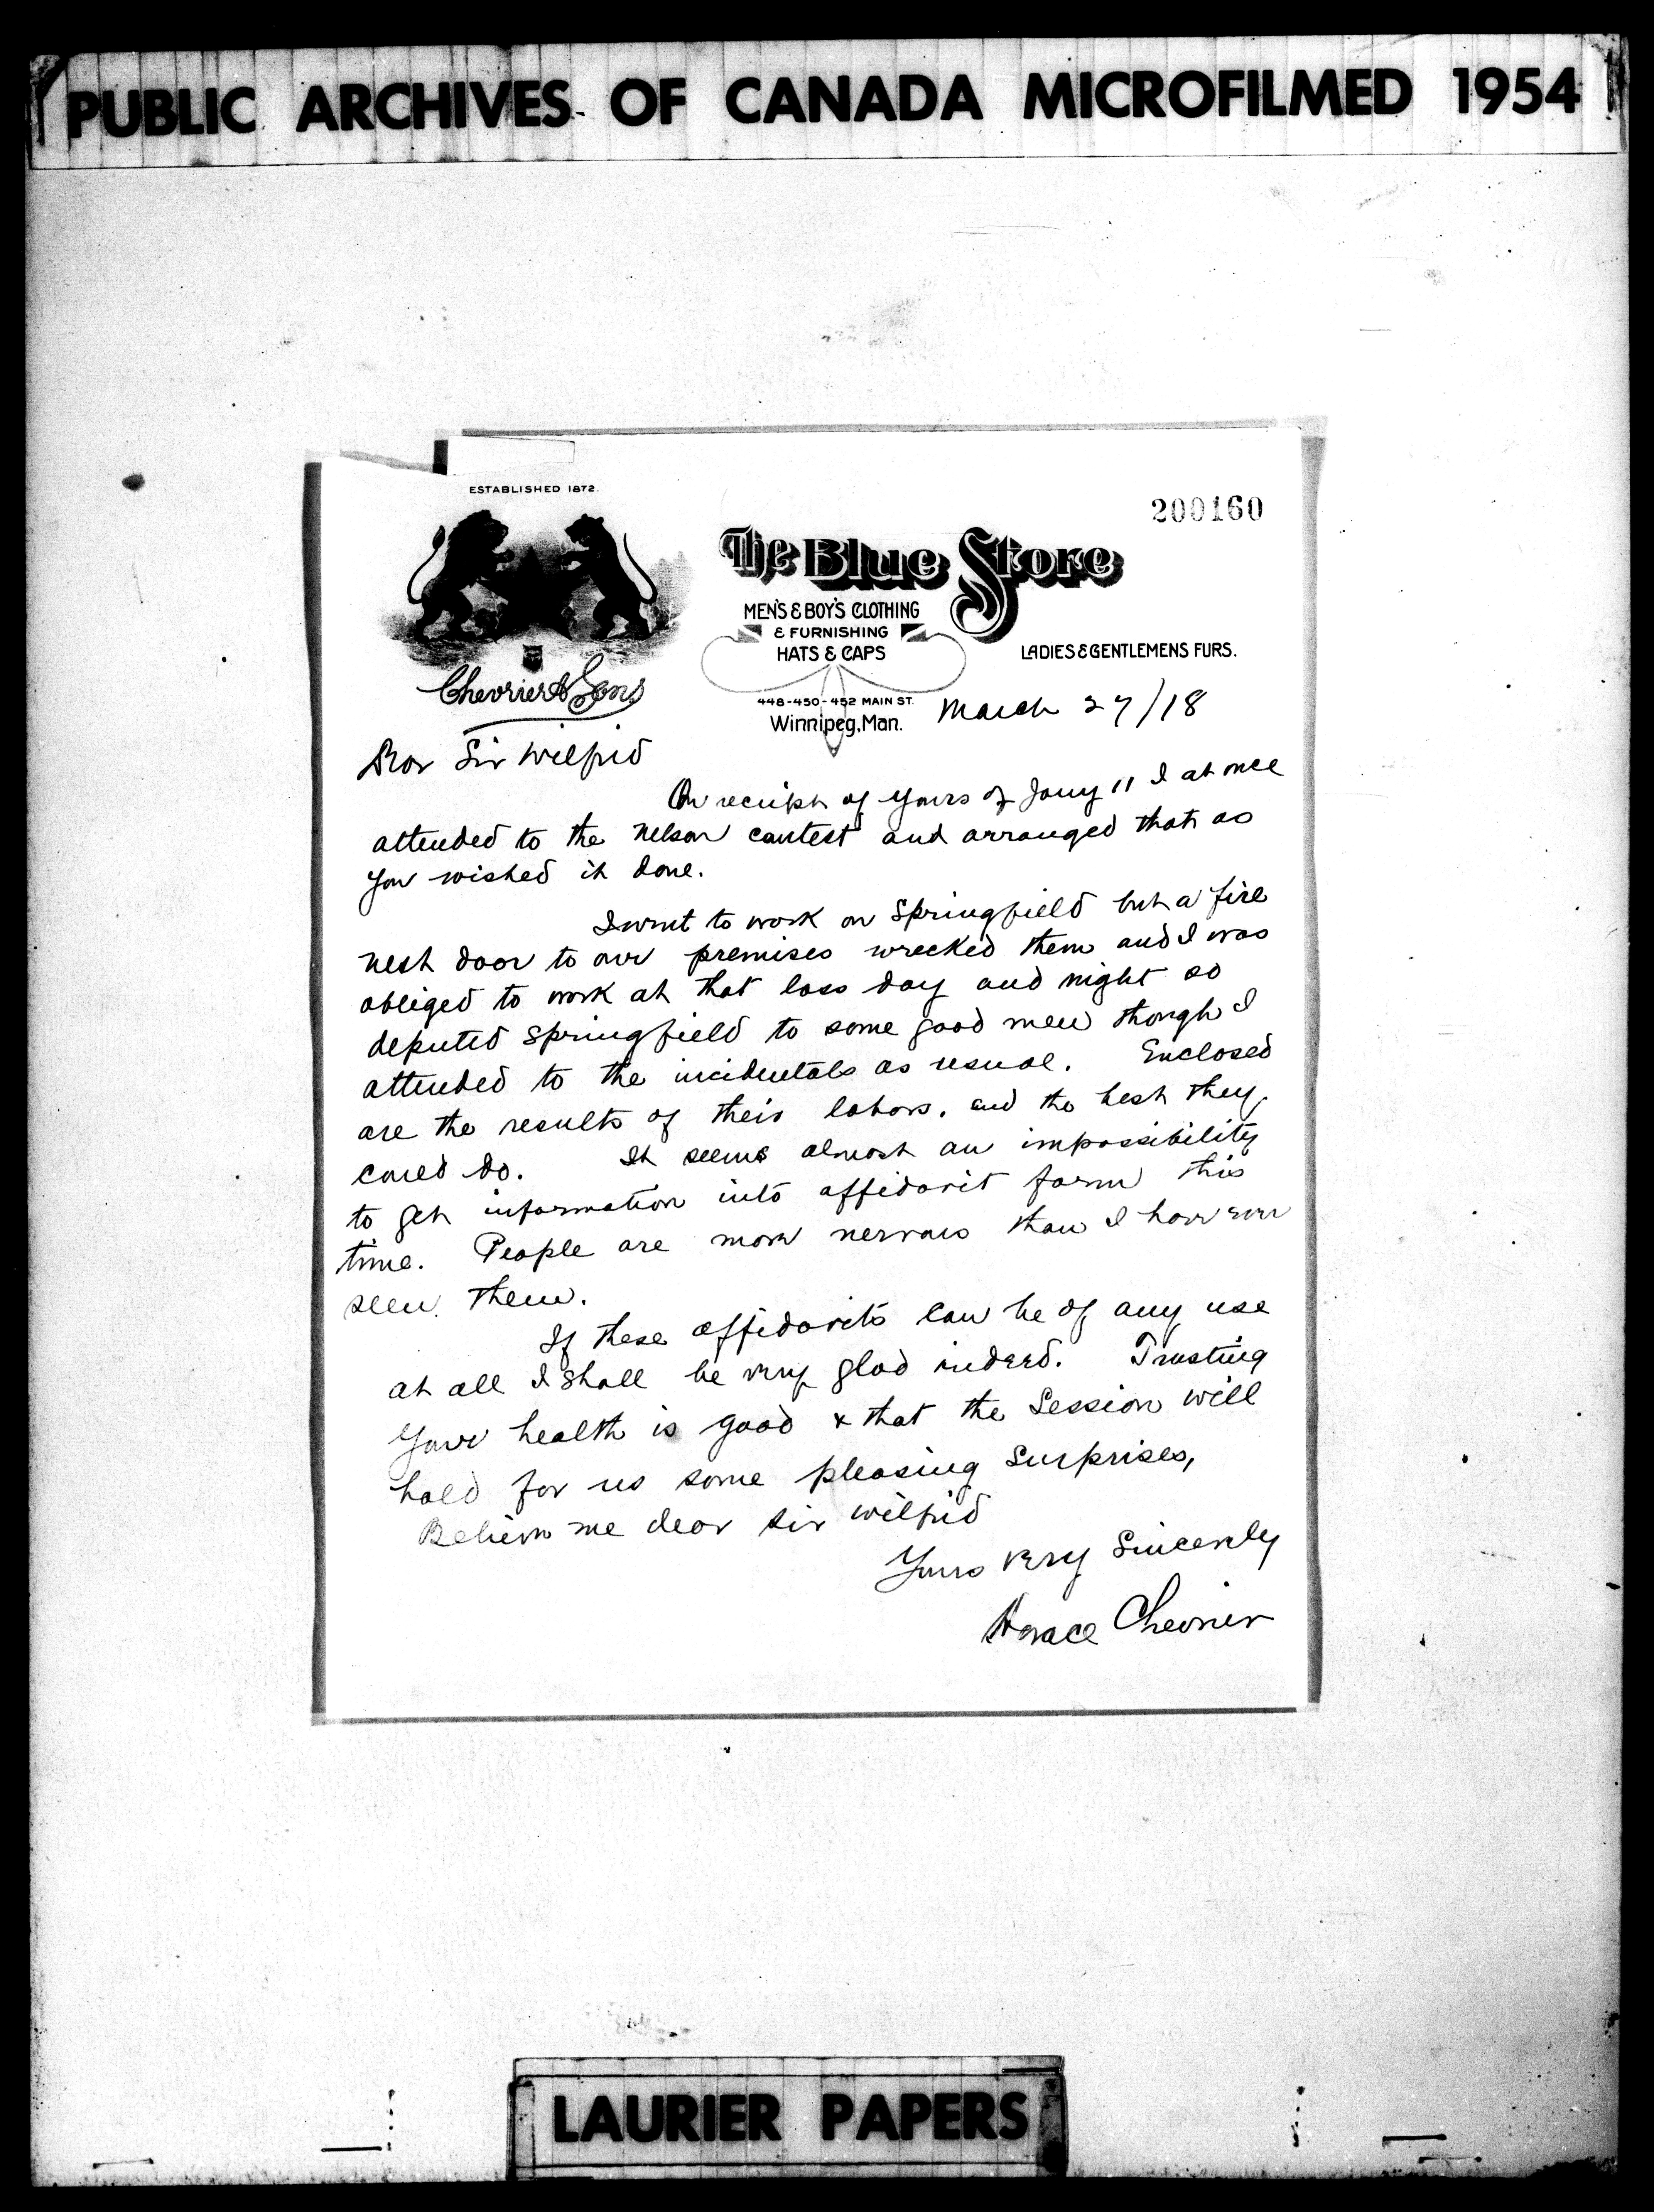 PUBLIC ARCHIVES OF CANADA MICROFILMED 1954
ESTABLISHED 1872.
200160
The Blue Store
MEN'S & BOY'S CLOTHING
& FURNISHING
HATS & CAPS
LADIES & GENTLEMENS FURS.
Chevrier & Sons
448-450-452 MAIN ST.
Winnipeg, Man.
March 27/18
Dear Sir Wilfrid
On receipt of yours of Jany 11 I at once
attended to the Nelson contest and arranged that as
you wished it done.
I went to work on Springfield but a fire
next door to our premises wrecked them and I was
obliged to work at that loss day and night so
deputed Springfield to some good men though I
attended to the incidentals as usual. Enclosed
are the results of their labors. and the best they
could do. It seems almost an impossibility
to get information into affidavit form this
time. People are more nervous than I have ever
seen them.
If these affidavits can be of any use
at all I shall be very glad indeed. Trusting
your health is good & that the Session will
hold for us some pleasing surprises,
Believe me dear Sir Wilfrid
Yours very Sincerely
Horace Chevrier
LAURIER PAPERS